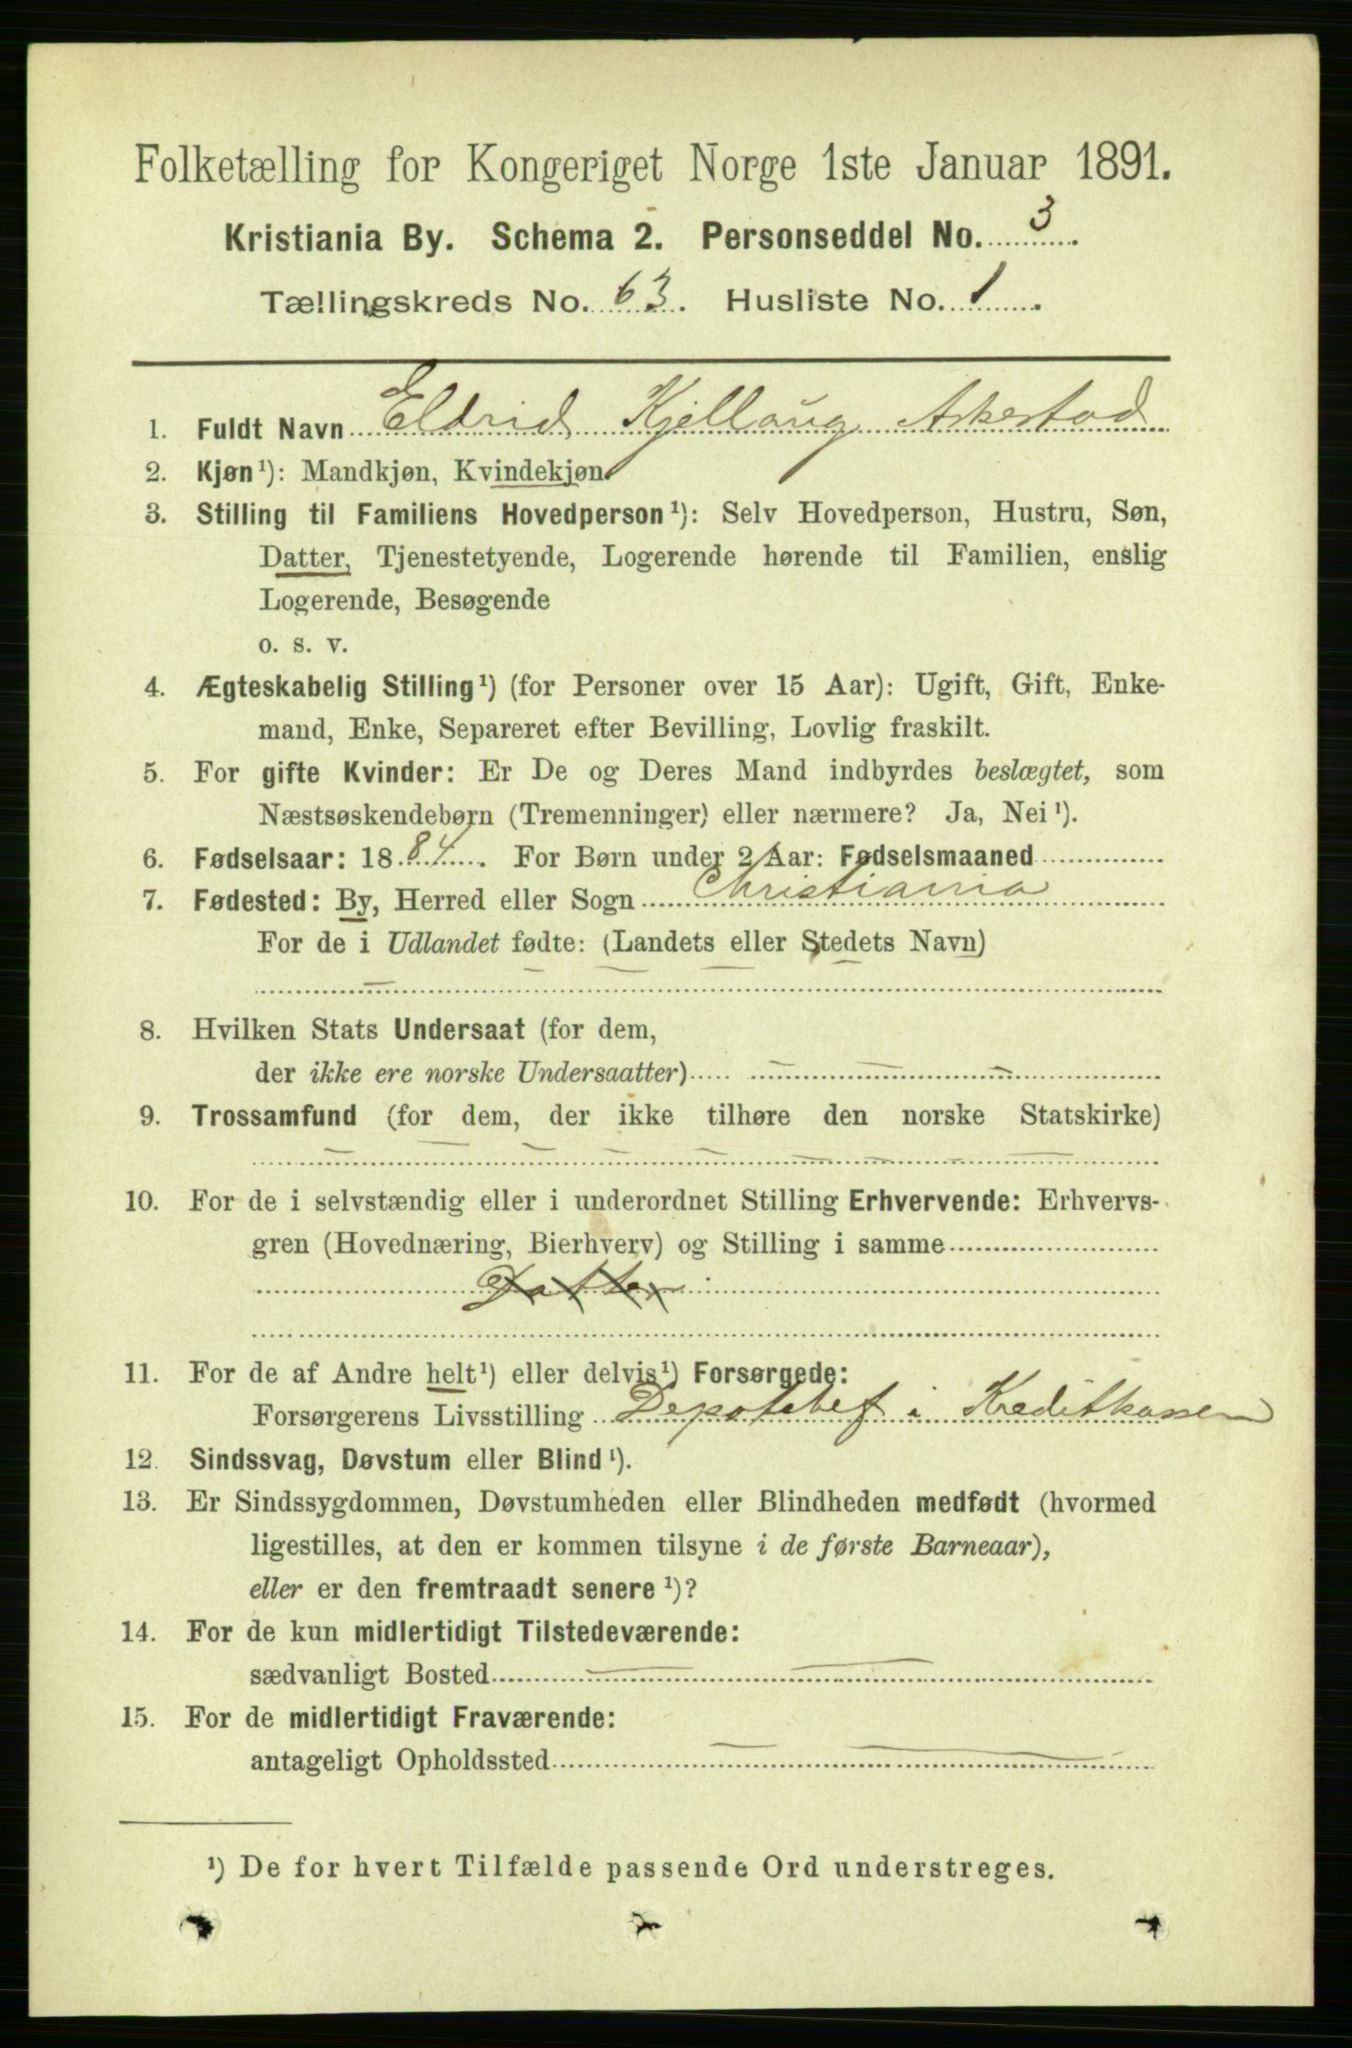 Folketælling for Kongeriget Norge 1ste Januar 1891.
Kristiania By. Schema 2. Personseddel No. 3.
Tællingskreds No. 63. Husliste No. 1.
1. Fuldt Navn Eldrid Kjellaug Askestad
2. Kjøn¹): Mandkjøn, Kvindekjøn.
3. Stilling til Familiens Hovedperson¹): Selv Hovedperson, Hustru, Søn,
Datter, Tjenestetyende, Logerende hørende til Familien, enslig
Logerende, Besøgende
o. s. v.
4. Ægteskabelig Stilling¹) (for Personer over 15 Aar): Ugift, Gift, Enke-
mand, Enke, Separeret efter Bevilling, Lovlig fraskilt.
5. For gifte Kvinder: Er De og Deres Mand indbyrdes beslægtet, som
Næstsøskendebørn (Tremenninger) eller nærmere? Ja, Nei¹).
6. Fødselsaar: 1884. For Børn under 2 Aar: Fødselsmaaned
7. Fødested: By, Herred eller Sogn Christiania
For de i Udlandet fødte: (Landets eller Stedets Navn)
8. Hvilken Stats Undersaat (for dem,
der ikke ere norske Undersaatter)
9. Trossamfund (for dem, der ikke tilhøre den norske Statskirke)
10. For de i selvstændig eller i underordnet Stilling Erhvervende: Erhvervs-
gren (Hovednæring, Bierhverv) og Stilling i samme
Datter
11. For de af Andre helt¹) eller delvis¹) Forsørgede:
Forsørgerens Livsstilling Depotchef i Kreditkassen
12. Sindssvag, Døvstum eller Blind¹).
13. Er Sindssygdommen, Døvstumheden eller Blindheden medfødt (hvormed
ligestilles, at den er kommen tilsyne i de første Barneaar),
eller er den fremtraadt senere¹)?
14. For de kun midlertidigt Tilstedeværende:
sædvanligt Bosted
15. For de midlertidigt Fraværende:
antageligt Opholdssted
¹) De for hvert Tilfælde passende Ord understreges.